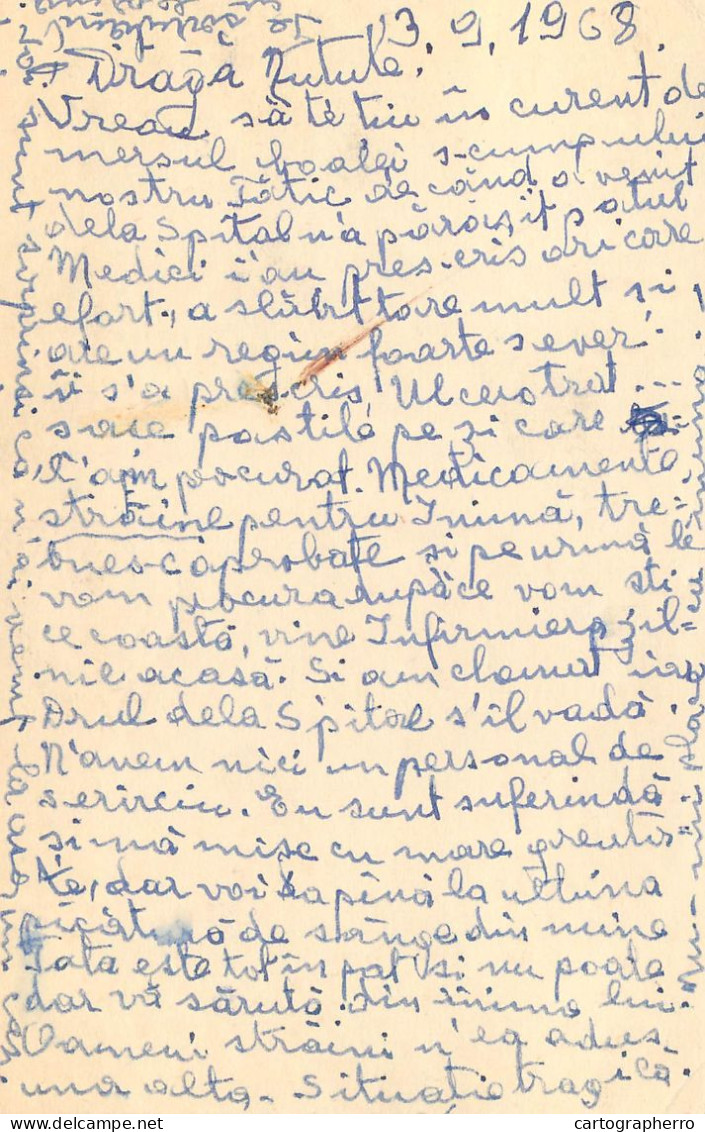 13.9.1968.
Dragă Nutule,
Vreau să te țiu în curent de
mersul boalei scumpului
nostru Tătic de când a venit
dela Spital n'a părăsit patul
Medici i'au prescris oricare
efort, a slăbit tare mult și
are un regim foarte sever!
îi s'a prescris Ulcerotrat ...
șase pastile pe zi care
l'am procurat. Medicamente
străine pentru Inimă, tre=
buesc aprobate și pe urmă le
vom procura după ce vom ști
ce coastă, vine Infirmiera zil=
nic acasă. Și am chemat iar
Drul dela Spital s'îl vadă.
N'avem nici un personal de
serviciu. Eu sunt suferindă
și mă mișc cu mare greută=
te, dar voi da până la ultima
picătură de sânge din mine
Tata este tot în pat și nu poate
dar vă sărută din inima lui.
Oameni străini n'ea adus
una alta. Situație tragică.
sunt surprinsă că n'ai venit la
cartographerro